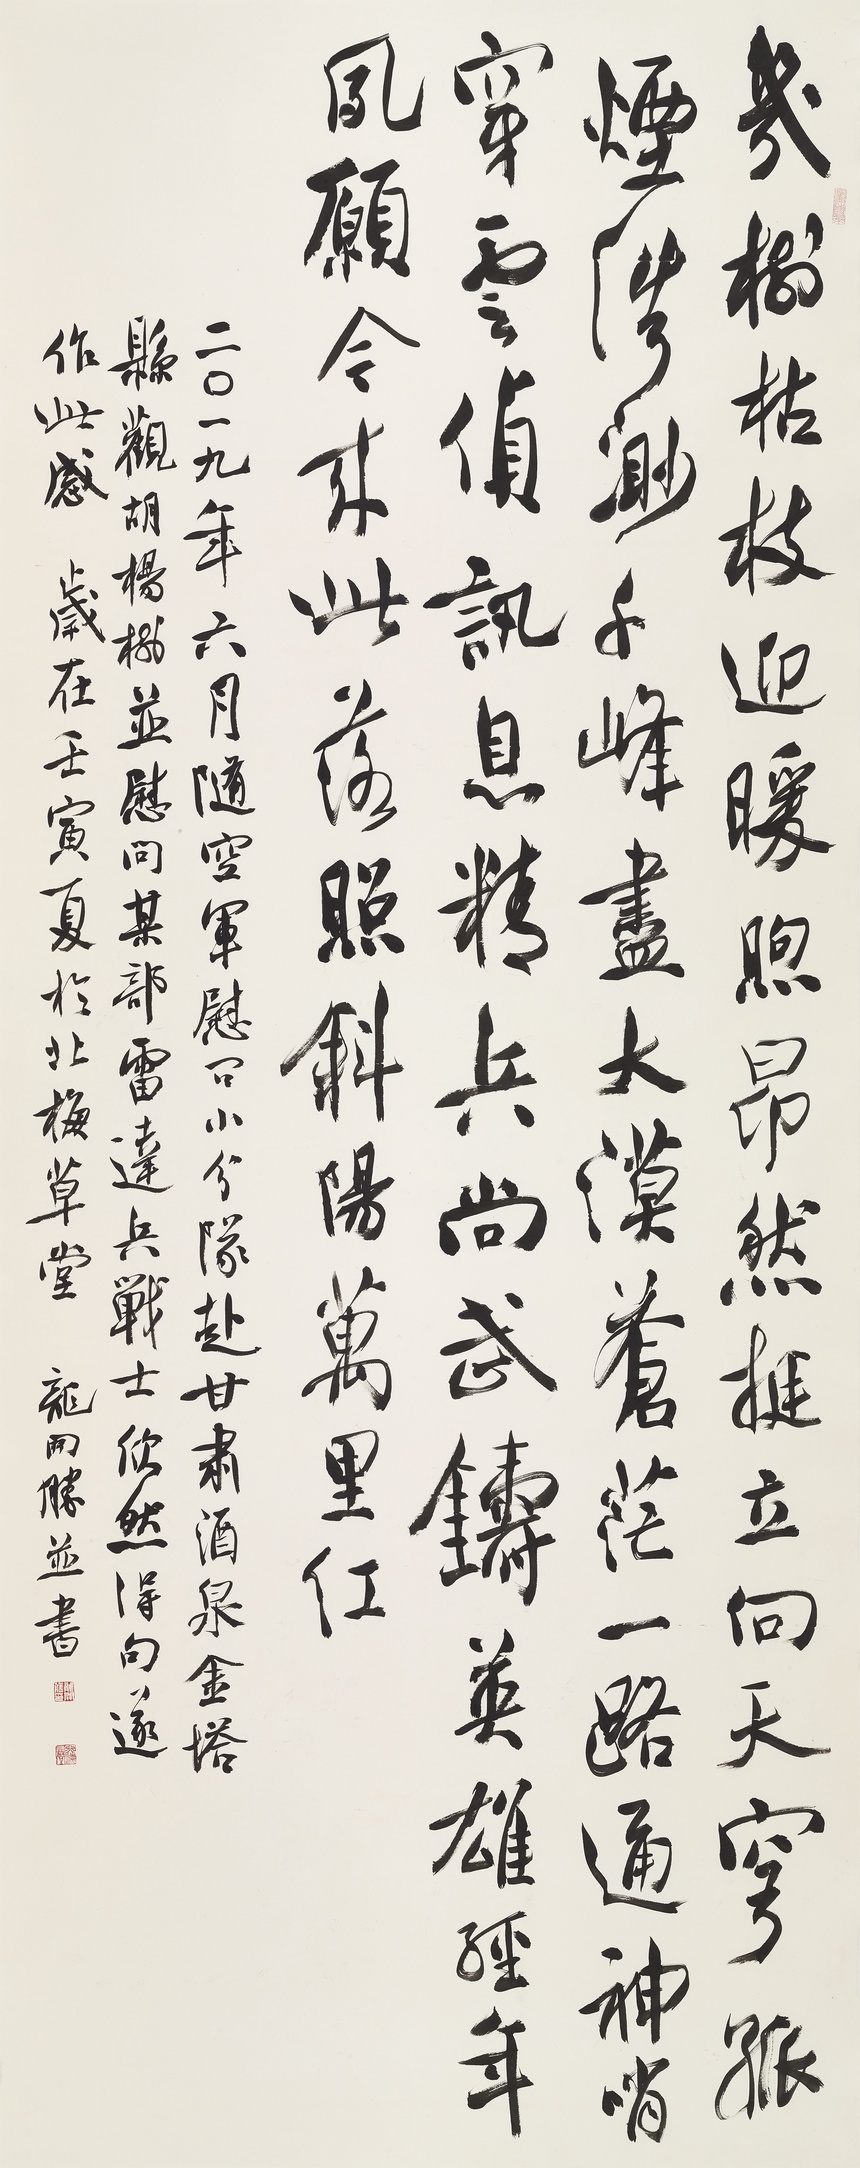 幾樹枯枝迎暖煦昂然挺立向天穹孤
煙浩渺千峰盡大漠蒼茫一路通神哨
穿雲偵訊息精兵尚武鑄英雄經年
夙願今來此落照斜陽萬里紅
二〇一九年六月隨空軍慰问小分隊赴甘肅酒泉金塔
縣觀胡楊樹並慰问某部雷達兵戰士欣然得句遂
作此感 歲在壬寅夏於北梅草堂 龍開勝並書